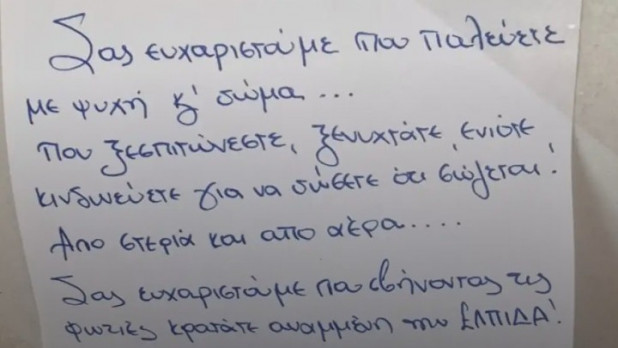 Σας ευχαριστούμε που παλεύετε
με ψυχή κ' σώμα...
Που ξεσπιτώνεστε, ξενυχτάτε, ενίοτε
κινδυνεύετε για να σώσετε ότι σώζεται!
Απο στεριά και απο αέρα....
Σας ευχαριστούμε που σβήνοντας τις
φωτιές κρατάτε αναμμένη την ΕΛΠΙΔΑ!